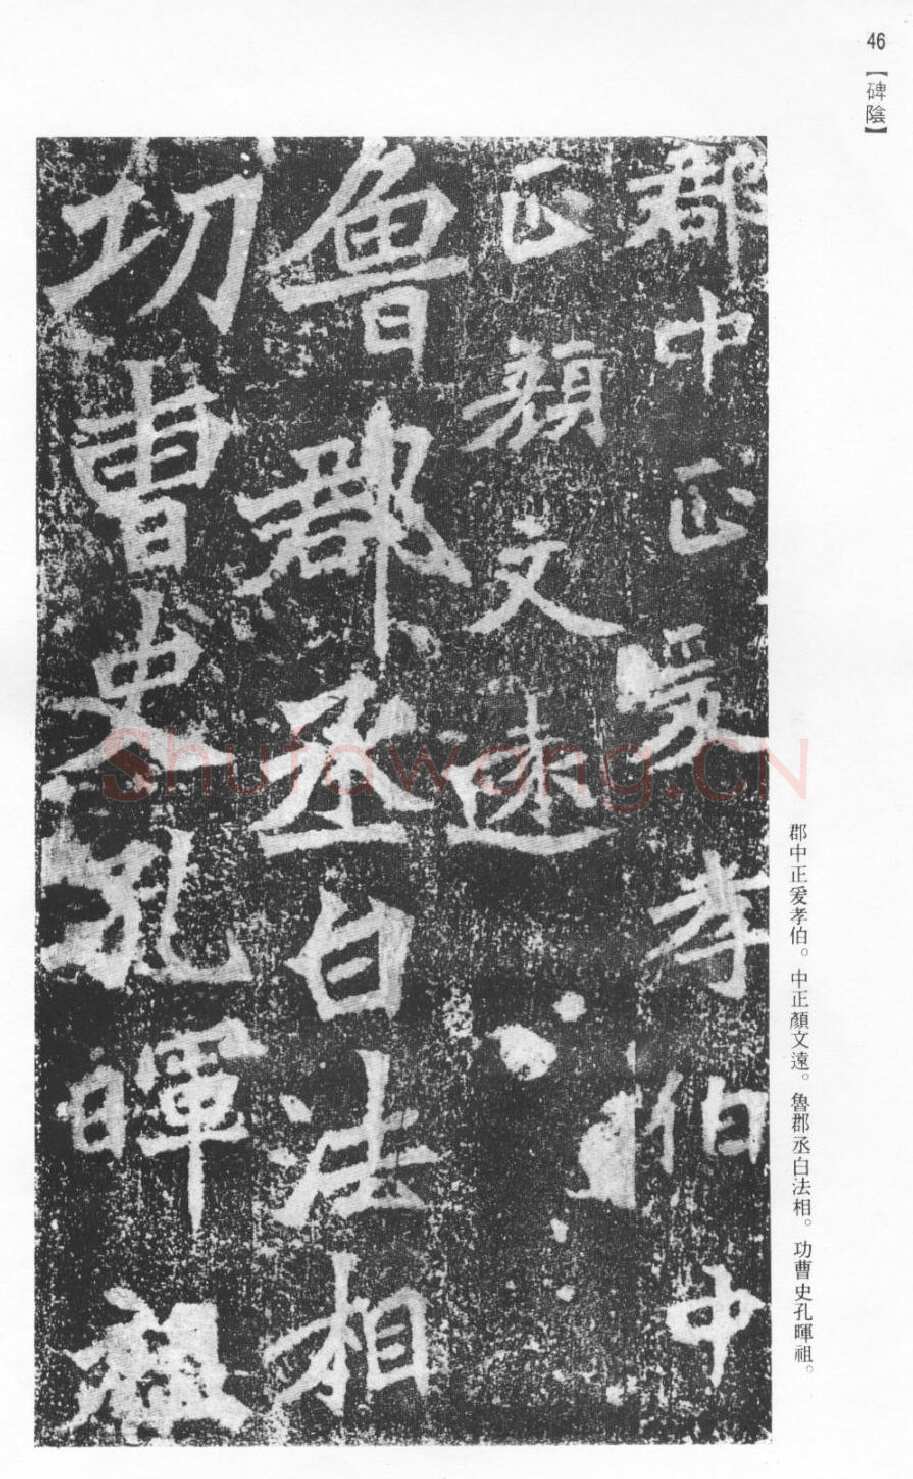 46
【碑陰】
郡中正爰孝伯中
正顏文遠
魯郡丞白法相
功曹史孔暉祖
郡中正爰孝伯。中正顏文遠。魯郡丞白法相。功曹史孔暉祖。
Shufawang.CN